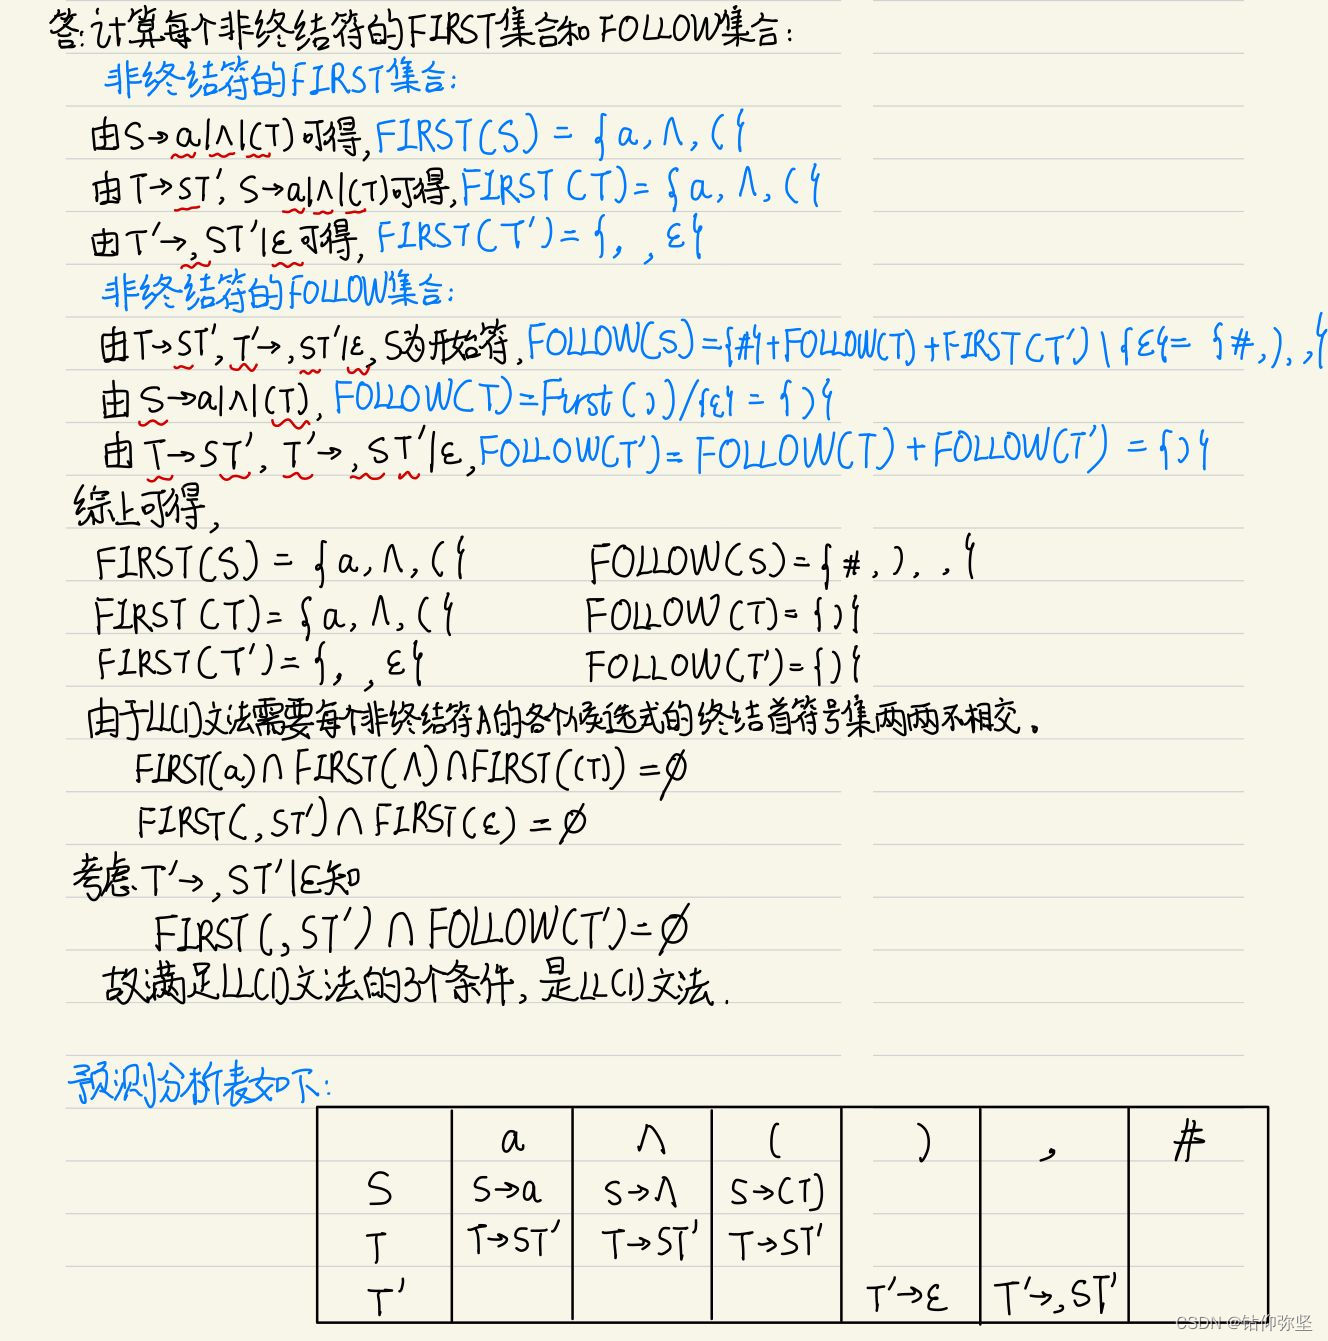 答:计算每个非终结符的FIRST集合和FOLLOW集合:
非终结符的FIRST集合:
由S→a|∧|(T)可得,FIRST(S) = {a,∧,(}
由T→ST', S→a|∧|(T)可得,FIRST(T)={a,∧,(}
由T'→,ST'|ε可得, FIRST(T')={, ,ε}
非终结符的FOLLOW集合:
由T→ST',T'→,ST'|ε,S为开始符,FOLLOW(S)={#}+FOLLOW(T)+FIRST(T')\{ε}= {#,),,}
由S→a|∧|(T), FOLLOW(T)=First())/{ε} = {)}
由T→ST', T'→,ST'|ε,FOLLOW(T')=FOLLOW(T)+FOLLOW(T') = {)}
综上可得,
FIRST(S) = {a,∧,(} FOLLOW(S)={#,),,}
FIRST(T)={a,∧,(} FOLLOW(T)={)}
FIRST(T')={, ,ε} FOLLOW(T')={)}
由于LL(1)文法需要每个非终结符A的各个候选式的终结首符号集两两不相交.
FIRST(a)∩FIRST(∧)∩FIRST((T))=∅
FIRST(,ST')∩FIRST(ε)=∅
考虑T'→,ST'|ε知
FIRST(,ST')∩FOLLOW(T')=∅
故满足LL(1)文法的3个条件,是LL(1)文法.
预测分析表如下:
a ∧ ( ) , #
S S→a S→∧ S→(T)
T T→ST' T→ST' T→ST'
T' T'→ε T'→,ST'
CSDN @钻仰弥坚